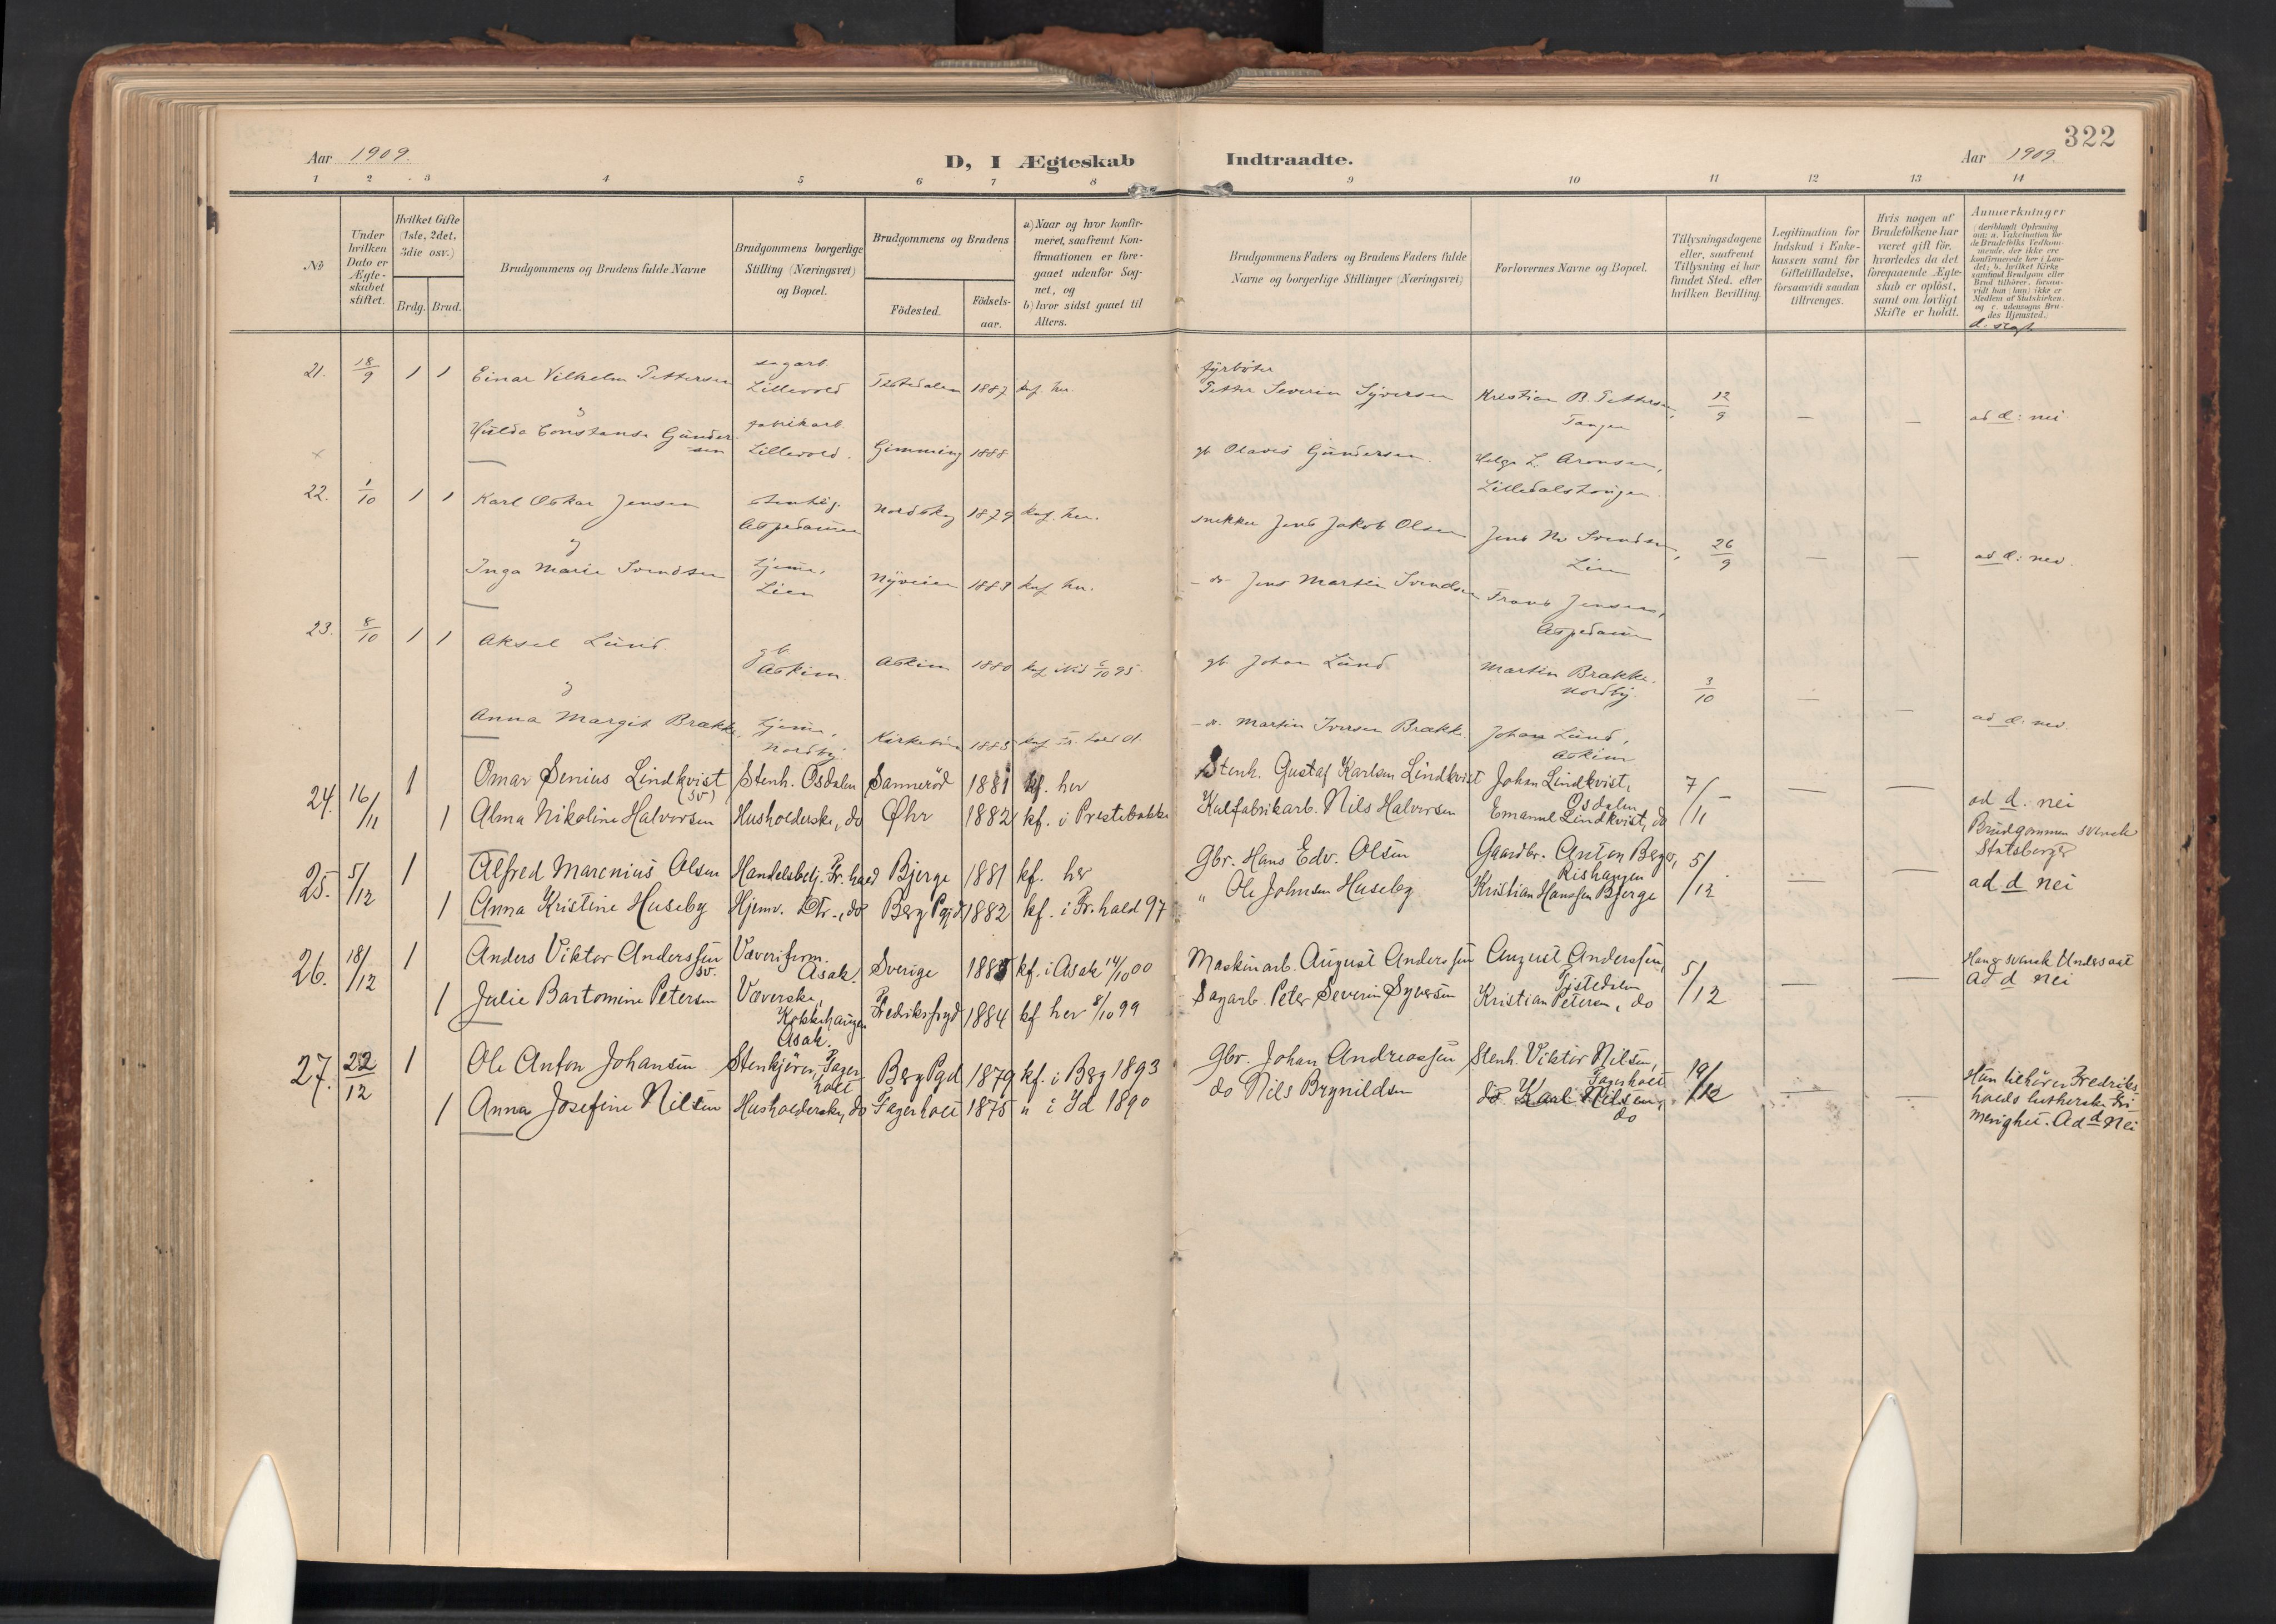 322
Aar 1909.
D, I Ægteskab Indtraadte.
Aar 1909
1 2 3 4 5 6 7 8 9 10 11 12 13 14
No
Under hvilken Dato er Ægteskabet stiftet.
Hvilket Gifte (1ste, 2det, 3die osv.)
Brdg. Brud.
Brudgommens og Brudens fulde Navne
Brudgommens borgerlige Stilling (Næringsvei) og Bopæl.
Brudgommens og Brudens
Födested. Födsels-aar.
a) Naar og hvor konfirmeret, saafremt Konfirmationen er foregaaet udenfor Sognet, og
b) hvor sidst gaaet til Alters.
Brudgommens Faders og Brudens Faders fulde Navne og borgerlige Stillinger (Næringsvei)
Forlovernes Navne og Bopæl.
Tillysningsdagene eller, saafremt Tillysning ei har fundet Sted, efter hvilken Bevilling.
Legitimation for Indskud i Enkekassen samt for Giftetilladelse, forsaavidt saadan tiltrænges.
Hvis nogen af Brudefolkene har været gift för, hvorledes da det foregaaende Ægteskab er oplöst, samt om lovligt Skifte er holdt.
Anmærkninger
21. 18/9 1 1 Einar Vilhelm Pettersen sagarb. Lillevold Tistedalen 1887 knf. her.
fyrböter Petter Severin Syversen Kristian B. Pettersen, Tangen 12/9 — — ad d: nei
Hulda Constanse Gundersen fabrikarb. Lillevold. Gimming 1888
gb Olavis Gundersen. Helge L. Aronsen,
22. 1/10 1 1 Karl Oskar Jensen stenhg. Aspedammen Nordskog 1879 knf. her.
snekker Jens Jakob Olsen Jens M. Svendsen, Lien 26/9 — — ad d: nei.
Inga Marie Svendsen hjemme, Lien Nyveien 1883 knf her.
— do — Jens Martin Svendsen Frans Jensen, Aspedammen
23. 8/10 1 1 Aksel Lund gb. Askim. Askim 1880
gb. Johan Lund Martin Brække, Nordby. 3/10 — — ad d: nei.
Anna Margit Brække, hjemme, Nordby 1885
— do. Martin Iversen Brække Johan Lund, Askim
24. 16/11 1 Omar Senius Lindkvist (sv) Stenh. Osdalen Sannerød 1881 kf. her
Stenh. Gustaf Karlsen Lindkvist Johan Lindkvist, Osdalen 7/11 — — — ad d. nei
1 Alma Nikoline Halvorsen Husholderske, do Øhr 1882 kf. i Prestebakke
Kalfabrikarb. Nils Halvorsen Emanuel Lindkvist, do
Brudgommen svensk Statsborger
25. 5/12 1 Alfred Marenius Olsen Handelsbetj. Fr.hald Bjerge 1881 kf. her
Gbr. Hans Edv. Olsen Gaardbr. Anton Berger, Rishaugen 5/12 — — ad d nei
1 Anna Kristine Huseby Hjemv. Dtr., do Berg Pgjd 1882 kf. i Fr.hald 97
" Ole Johnsen Huseby Kristian Hanssen Bjerge
26. 18/12 1 Anders Viktor Anderssen sv. Væveriform. Asak. Sverige 1885 kf. i Asak 14/10 00
Maskinarb. August Anderssen August Anderssen, Tistedalen 5/12 — — Han er svensk Undersaat Ad d nei
1 Julie Bartomine Petersen Væverske, Kokkehaugen Asak. Fredriksfryd 1884 kf her 8/10 99
Sagarb. Peter Severin Syversen Kristian Petersen, do
27. 22/12 1 Ole Anton Johansen Stenkjörer, Fagerholt Berg Pgd 1879 kf. i Berg 1893
Gbr. Johan Andreassen Stenh. Viktor Nilsen, Fagerholt 19/12
1 Anna Josefine Nilsen Husholderske, do Fagerholt 1875 " i Id 1890
do Nils Brynildsen do Karl Nilsen, do
Hun tilhörer Fredrikshalds lutherske Frimenighet. Ad d nei